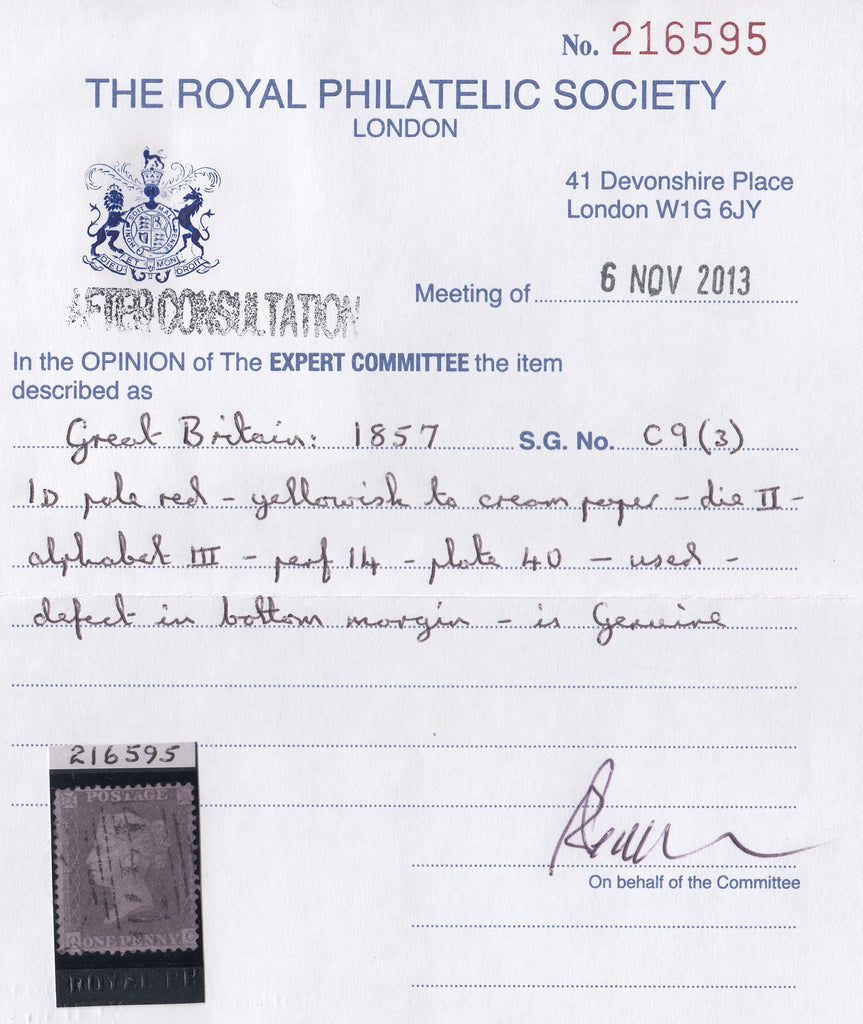 No. 216595
THE ROYAL PHILATELIC SOCIETY
LONDON
41 Devonshire Place
London W1G 6JY
DIEU ET MON DROIT
AFTER CONSULTATION
Meeting of 6 NOV 2013
In the OPINION of The EXPERT COMMITTEE the item
described as
Great Britain: 1857 S.G. No. C9(3)
1D pale red - yellowish to cream paper - die II -
alphabet III - perf 14 - plate 40 - used -
defect in bottom margin - is Genuine
216595
POSTAGE
ONE PENNY
ROYAL
On behalf of the Committee